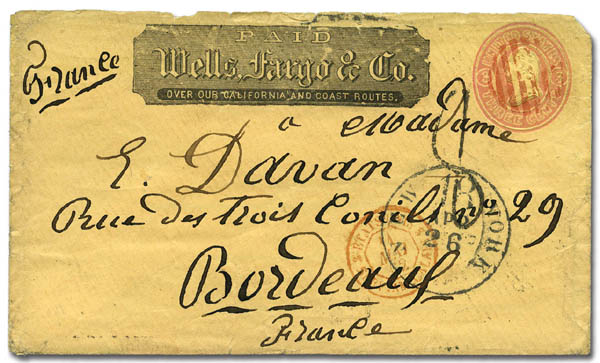 France
PAID
Wells, Fargo & Co.
OVER OUR CALIFORNIA AND COAST ROUTES.
à Madame
E. Davan
Rue des Trois Conils no 29
Bordeaux
France
YORK
26